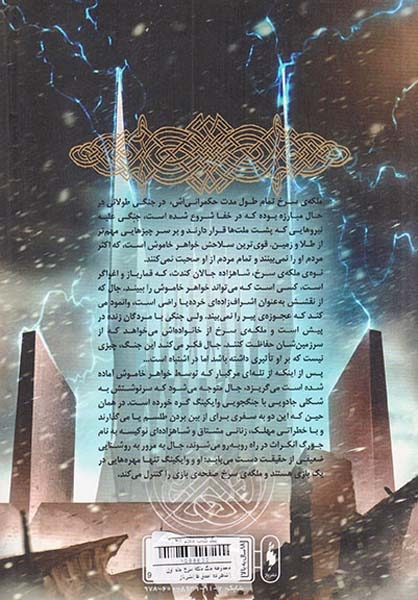 ملکه‌ی سرخ تمام طول مدت حکمرانی‌اش، در جنگی طولانی در
حال مبارزه بوده که در خفا شروع شده است، جنگی علیه
نیروهایی که پشت ملت‌ها قرار دارند و بر سر چیزهایی مهم‌تر
از طلا و زمین. قوی‌ترین سلاحش خواهر خاموش است، که اکثر
مردم او را نمی‌بینند و تمام مردم از او صحبت نمی‌کنند.
نوه‌ی ملکه‌ی سرخ، شاهزاده جالان کندث، که قمارباز و اغواگر
است، کسی است که می‌تواند خواهر خاموش را ببیند. جال که
از نقشش به‌عنوان اشراف‌زاده‌ای خرده‌پا راضی است، وانمود می
کند که عجوزه‌ی پیر را نمی‌بیند. ولی جنگی با مردگان زنده در
پیش است و ملکه‌ی سرخ از خانواده‌اش می‌خواهد که از
سرزمین‌شان حفاظت کنند. جال فکر می‌کند این جنگ، چیزی
نیست که بر او تأثیری داشته باشد اما در اشتباه است...
پس از اینکه از تله‌ای مرگبار که توسط خواهر خاموش آماده
شده است می‌گریزد، جال متوجه می‌شود که سرنوشتش به
شکلی جادویی با جنگجویی وایکینگ گره خورده است. در همان
حین که این دو به سفری برای از بین بردن طلسم پا می‌گذارند
و با خطراتی مهلک، زنانی مشتاق و شاهزاده‌ای نوکیسه به نام
جورگ انکراث در راه روبه‌رو می‌شوند، جال به مرور به روشنایی
ضعیفی از حقیقت دست می‌یابد: او و وایکینگ تنها مهره‌هایی در
یک بازی هستند و ملکه‌ی سرخ صفحه‌ی بازی را کنترل می‌کند.